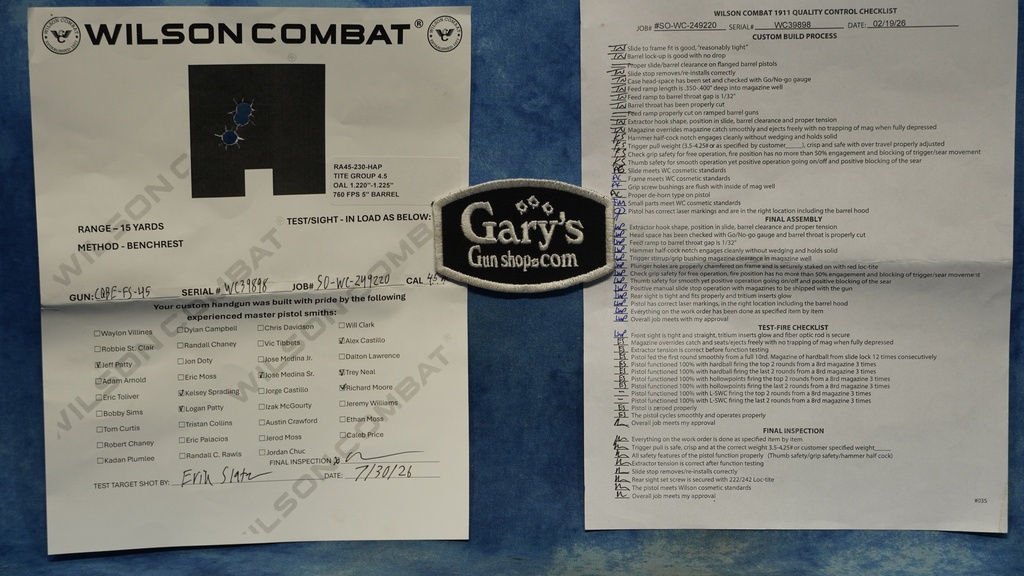 WILSON COMBAT®
RA45-230-HAP
TITE GROUP 4.5
OAL 1.220"-1.225"
760 FPS 5" BARREL
RANGE – 15 YARDS
TEST/SIGHT - IN LOAD AS BELOW:
METHOD - BENCHREST
GUN: CQBE-FS-45 SERIAL # WC39898 JOB# SO-WC-249220 CAL 45
Your custom handgun was built with pride by the following
experienced master pistol smiths:
Waylon Villines
Robbie St. Clair
Jeff Patty
Adam Arnold
Eric Toliver
Bobby Sims
Tom Curtis
Robert Chaney
Kadan Plumlee
Dylan Campbell
Randall Chaney
Jon Doty
Eric Moss
Kelsey Spradling
Logan Patty
Tristan Collins
Eric Palacios
Randall C. Rawls
Chris Davidson
Vic Tibbets
Jose Medina Jr.
Jose Medina Sr.
Jorge Castillo
Izak McGourty
Austin Crawford
Jerod Moss
Jordan Chuc
Will Clark
Alex Castillo
Dalton Lawrence
Trey Neal
Richard Moore
Jeremy Williams
Ethan Moss
Caleb Price
FINAL INSPECTION
TEST TARGET SHOT BY: Erik Slate DATE: 7/30/26
Gary's
Gun shop.com
WILSON COMBAT 1911 QUALITY CONTROL CHECKLIST
JOB# #SO-WC-249220 SERIAL# WC39898 DATE: 02/19/26
CUSTOM BUILD PROCESS
Slide to frame fit is good, "reasonably tight"
Barrel lock-up is good with no drop
Proper slide/barrel clearance on flanged barrel pistols
Slide stop removes/re-installs correctly
Case head-space has been set and checked with Go/No-go gauge
Feed ramp length is .350-.400" deep into magazine well
Feed ramp to barrel throat gap is 1/32"
Barrel throat has been properly cut
Feed ramp properly cut on ramped barrel guns
Extractor hook shape, position in slide, barrel clearance and proper tension
Magazine overrides magazine catch smoothly and ejects freely with no trapping of mag when fully depressed
Hammer half-cock notch engages cleanly without wedging and holds solid
Trigger pull weight (3.5-4.25# or as specified by customer_____), crisp and safe with over travel properly adjusted
Check grip safety for free operation, fire position has no more than 50% engagement and blocking of trigger/sear movement
Thumb safety for smooth operation yet positive operation going on/off and positive blocking of the sear
Slide meets WC cosmetic standards
Frame meets WC cosmetic standards
Grip screw bushings are flush with inside of mag well
Proper de-horn type on pistol
Small parts meet WC cosmetic standards
Pistol has correct laser markings and are in the right location including the barrel hood
FINAL ASSEMBLY
Extractor hook shape, position in slide, barrel clearance and proper tension
Head space has been checked with Go/No-go gauge and barrel throat is properly cut
Feed ramp to barrel throat gap is 1/32"
Hammer half-cock notch engages cleanly without wedging and holds solid
Trigger stirrup/grip bushing magazine clearance in magazine well
Plunger holes are properly chamfered on frame and is securely staked on with red loc-tite
Check grip safety for free operation, fire position has no more than 50% engagement and blocking of trigger/sear movement
Thumb safety for smooth yet positive operation going on/off and positive blocking of the sear
Positive manual slide stop operation with magazines to be shipped with the gun
Rear sight is tight and fits properly and tritium inserts glow
Pistol has correct laser markings, in the right location including the barrel hood
Everything on the work order has been done as specified item by item
Overall job meets with my approval
TEST-FIRE CHECKLIST
Front sight is tight and straight, tritium inserts glow and fiber optic rod is secure
Magazine overrides catch and seats/ejects freely with no trapping of mag when fully depressed
Extractor tension is correct before function testing
Pistol fed the first round smoothly from a full 10rd. Magazine of hardball from slide lock 12 times consecutively
Pistol functioned 100% with hardball firing the top 2 rounds from a 8rd magazine 3 times
Pistol functioned 100% with hardball firing the last 2 rounds from a 8rd magazine 3 times
Pistol functioned 100% with hollowpoints firing the top 2 rounds from a 8rd magazine 3 times
Pistol functioned 100% with hollowpoints firing the last 2 rounds from a 8rd magazine 3 times
Pistol functioned 100% with L-SWC firing the top 2 rounds from a 8rd magazine 3 times
Pistol functioned 100% with L-SWC firing the last 2 rounds from a 8rd magazine 3 times
Pistol is zeroed properly
The pistol cycles smoothly and operates properly
Overall job meets my approval
FINAL INSPECTION
Everything on the work order is done as specified item by item
Trigger pull is safe, crisp and at the correct weight 3.5-4.25# or customer specified weight_____
All safety features of the pistol function properly (Thumb safety/grip safety/hammer half cock)
Extractor tension is correct after function testing
Slide stop removes/re-installs correctly
Rear sight set screw is secured with 222/242 Loc-tite
The pistol meets Wilson cosmetic standards
Overall job meets my approval
#035